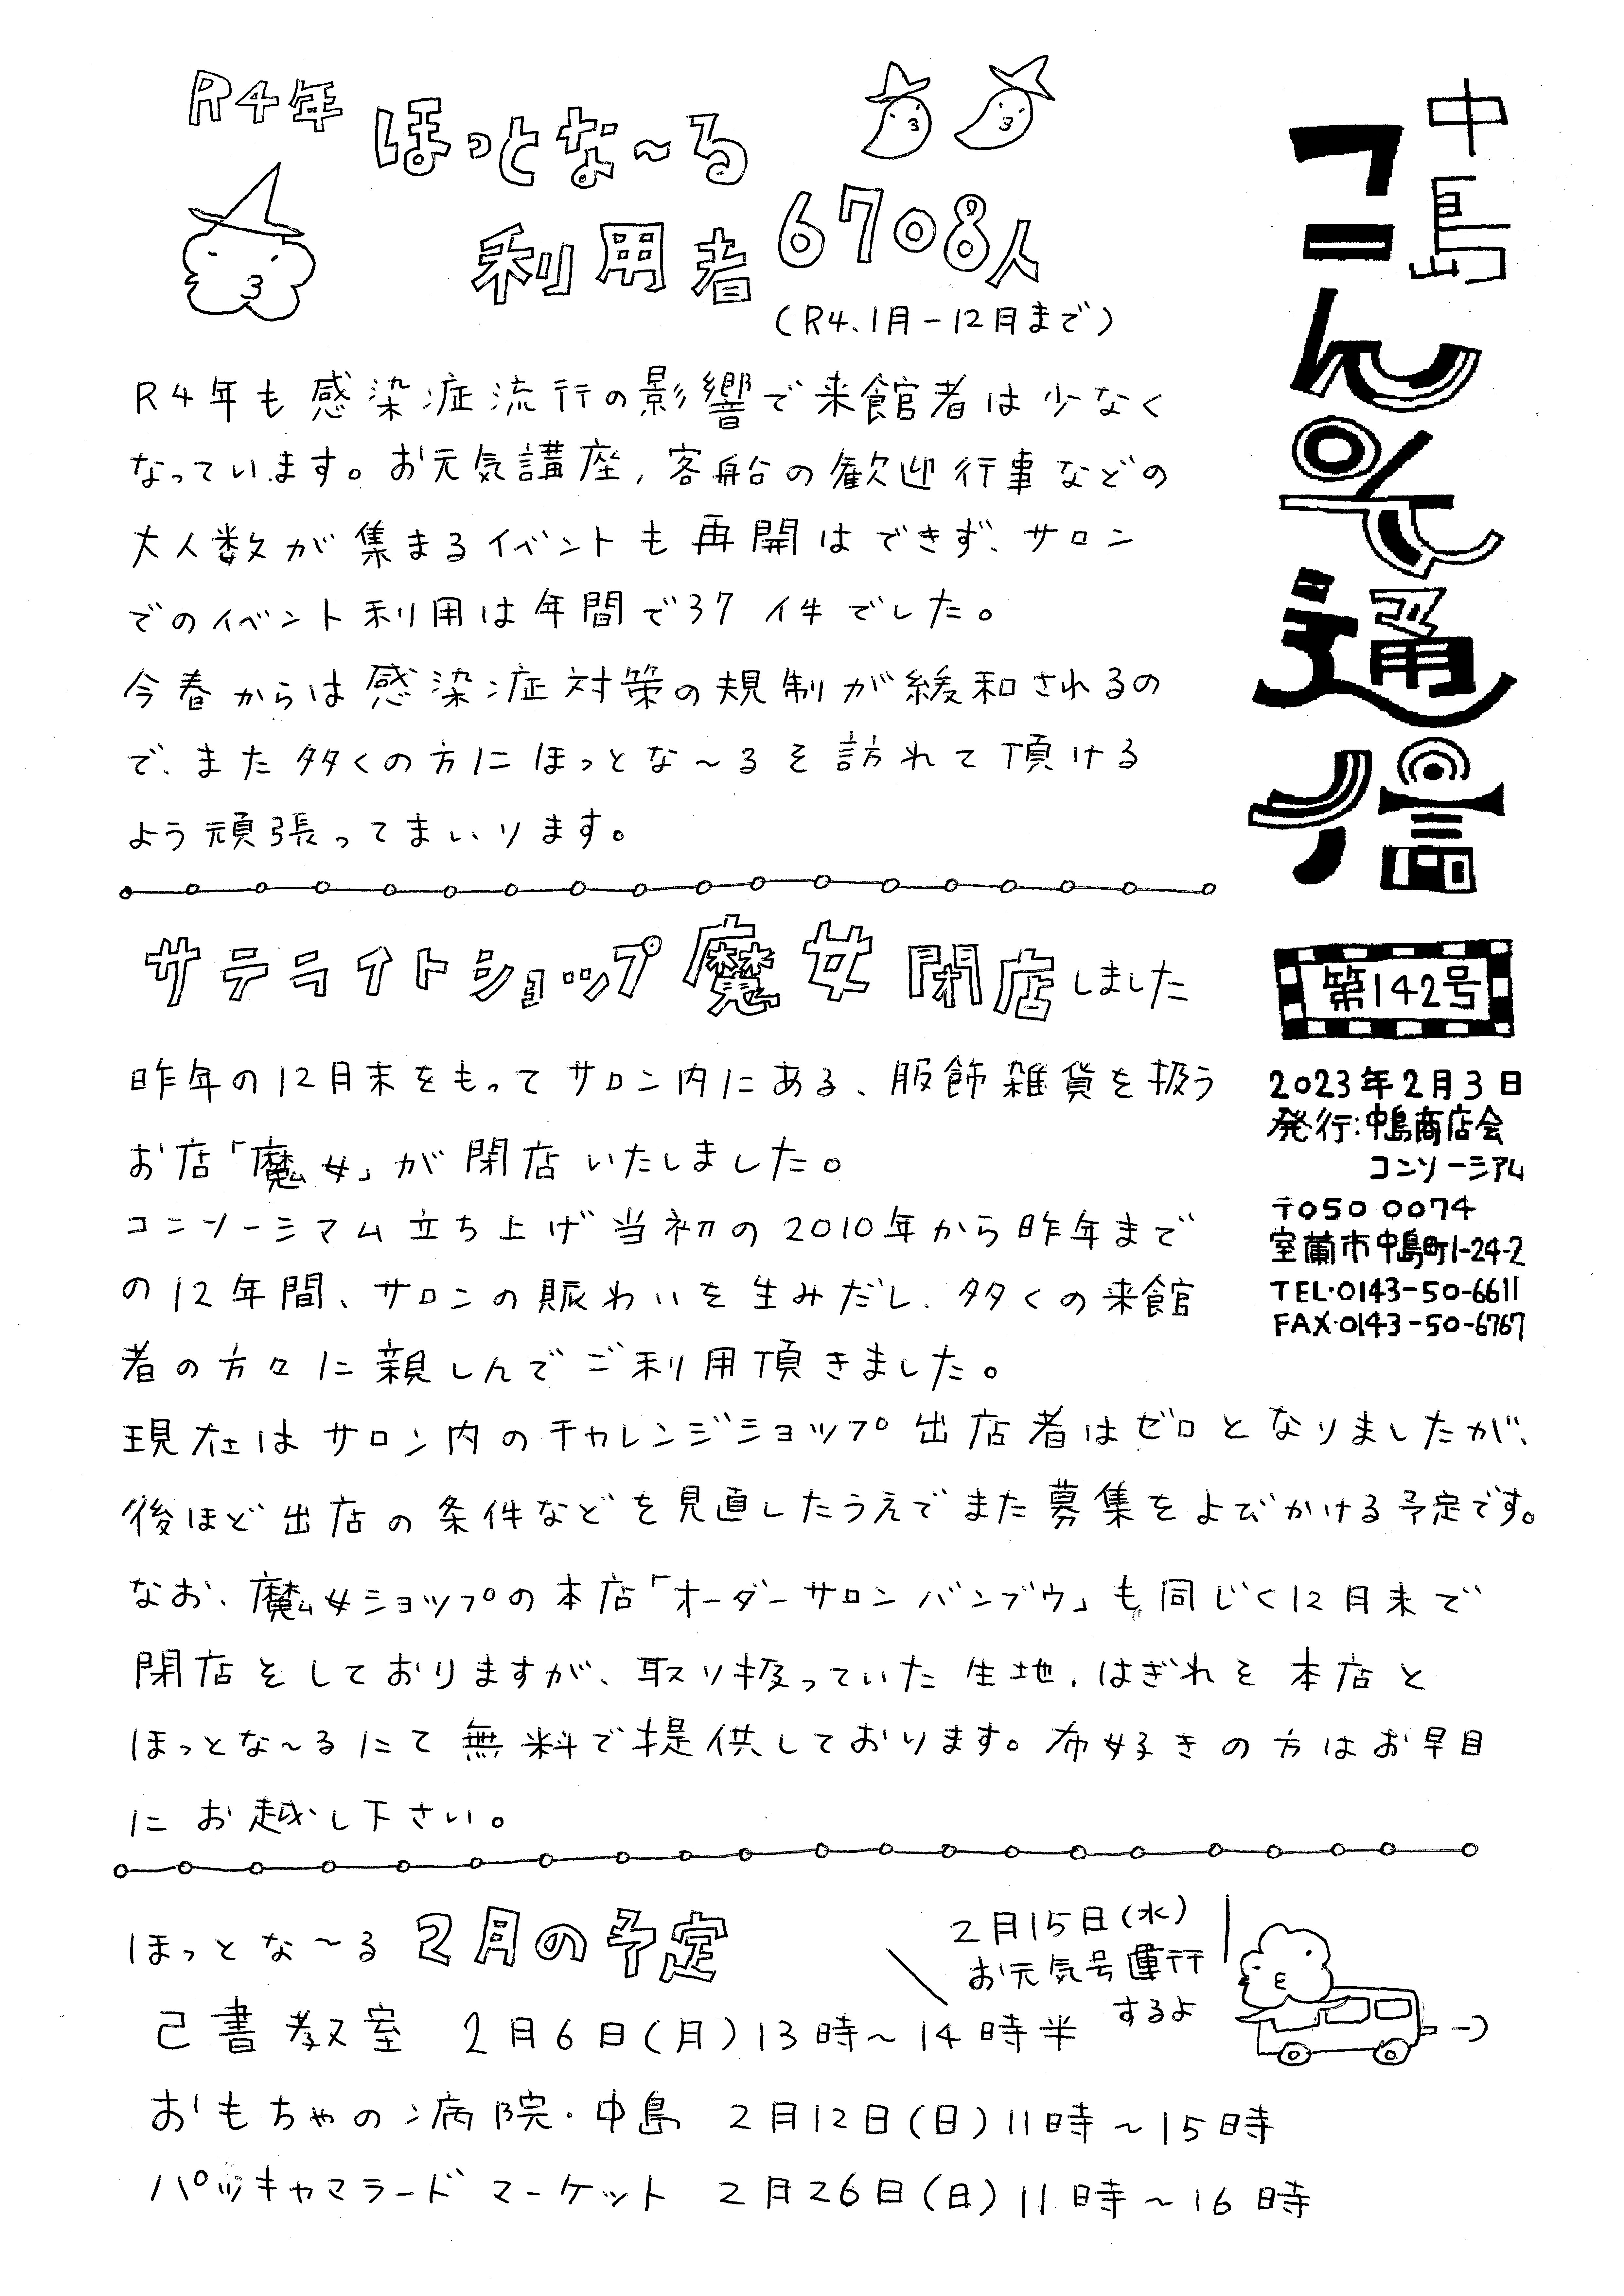 中島
コンソ通信
第142号
2023年2月3日
発行:中島商店会
コンソーシアム
〒050 0074
室蘭市中島町1-24-2
TEL・0143-50-6611
FAX・0143-50-6767
R4年 ほっとな～る
利用者6708人
(R4.1月-12月まで)
R4年も感染症流行の影響で来館者は少なく
なっています。お元気講座,客船の歓迎行事などの
大人数が集まるイベントも再開はできず、サロン
でのイベント利用は年間で37件でした。
今春からは感染症対策の規制が緩和されるの
で、また多くの方にほっとな～るを訪れて頂ける
よう頑張ってまいります。
サテライトショップ魔女閉店しました
昨年の12月末をもってサロン内にある、服飾雑貨を扱う
お店「魔女」が閉店いたしました。
コンソーシアム立ち上げ当初の2010年から昨年まで
の12年間、サロンの賑わいを生みだし、多くの来館
者の方々に親しんでご利用頂きました。
現在はサロン内のチャレンジショップ出店者はゼロとなりましたが、
後ほど出店の条件などを見直したうえでまた募集をよびかける予定です。
なお、魔女ショップの本店「オーダーサロンバンブウ」も同じく12月末で
閉店をしておりますが、取り扱っていた生地,はぎれを本店と
ほっとな～るにて無料で提供しております。布好きの方はお早目
にお越し下さい。
ほっとな～る 2月の予定
2月15日(水)
お元気号運行
するよ
己書教室 2月6日(月)13時～14時半
おもちゃの病院・中島 2月12日(日)11時～15時
パッキャマラードマーケット 2月26日(日)11時～16時